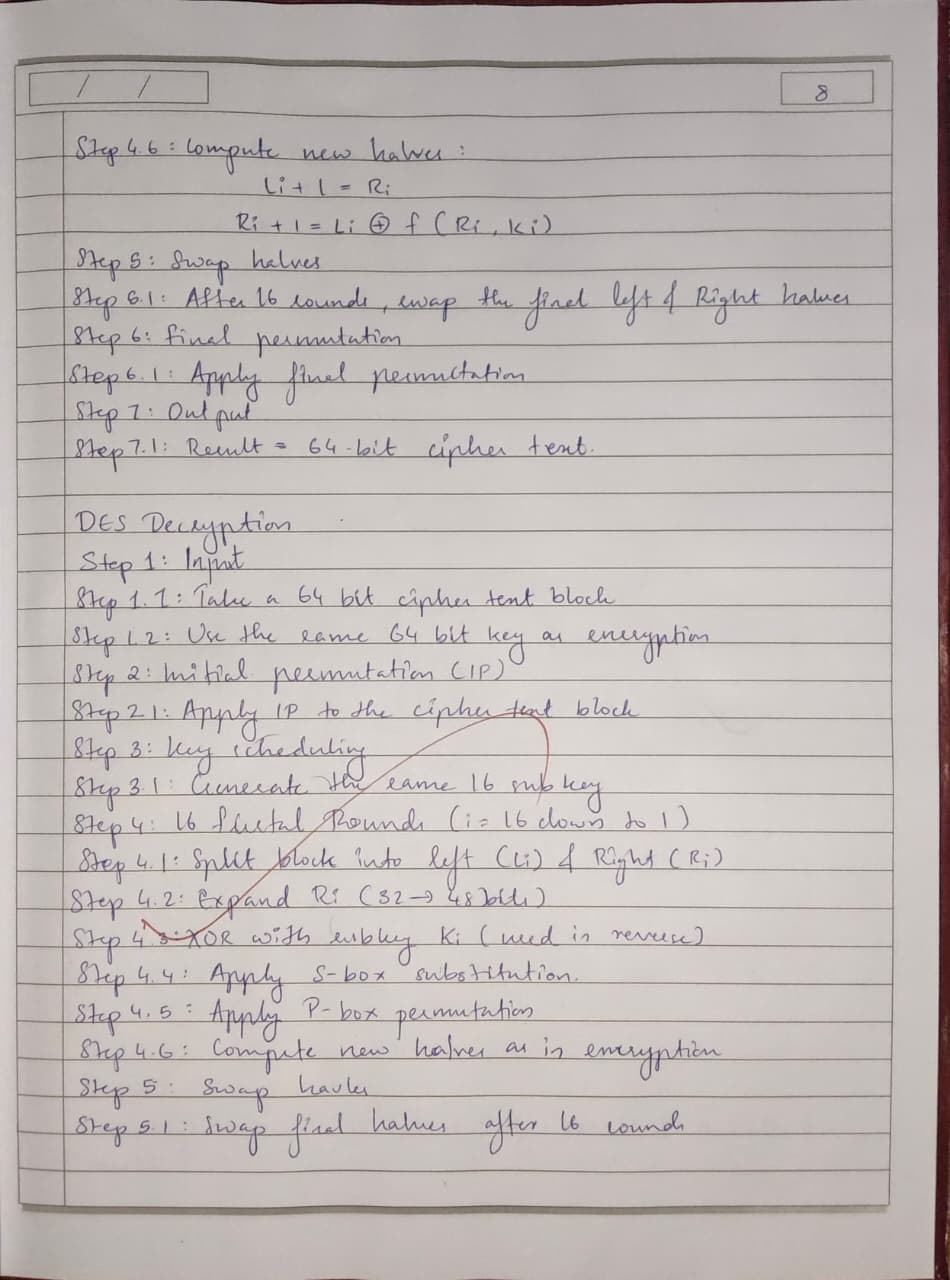 / /
8
Step 4.6: Compute new halves:
Li+1 = Ri
Ri+1 = Li ⊕ f (Ri, Ki)
Step 5: Swap halves
Step 5.1: After 16 rounds, swap the final left & Right halves
Step 6: final permutation
Step 6.1: Apply final permutation
Step 7: Output
Step 7.1: Result = 64-bit cipher text.
DES Decryption
Step 1: Input
Step 1.1: Take a 64 bit cipher text block
Step 1.2: Use the same 64 bit key as encryption
Step 2: Initial permutation (IP)
Step 2.1: Apply IP to the cipher text block
Step 3: Key scheduling
Step 3.1: Generate the same 16 sub key
Step 4: 16 Rounds (i=16 down to 1)
Step 4.1: Split block into left (Li) & Right (Ri)
Step 4.2: Expand Ri (32→48 bits)
Step 4.3: XOR with subkey Ki (used in reverse)
Step 4.4: Apply S-box substitution.
Step 4.5: Apply P-box permutation
Step 4.6: Compute new halves as in encryption
Step 5: Swap
Step 5.1: Swap final halves after 16 rounds